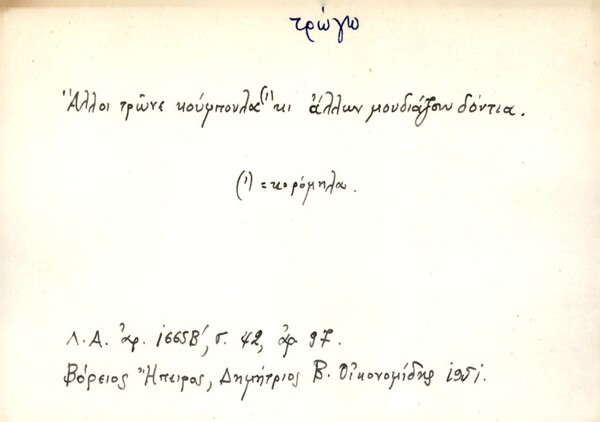 τρώγω
Ἄλλοι τρῶνε κούμπουλα (1) κι ἄλλων μουδιάζουν δόντια.
(1) = κορόμηλα.
Λ.Α. ἀρ. 1665Β', σ. 42, ἀρ 97.
Βόρειος Ἤπειρος, Δημήτριος Β. Οἰκονομίδης 1951.